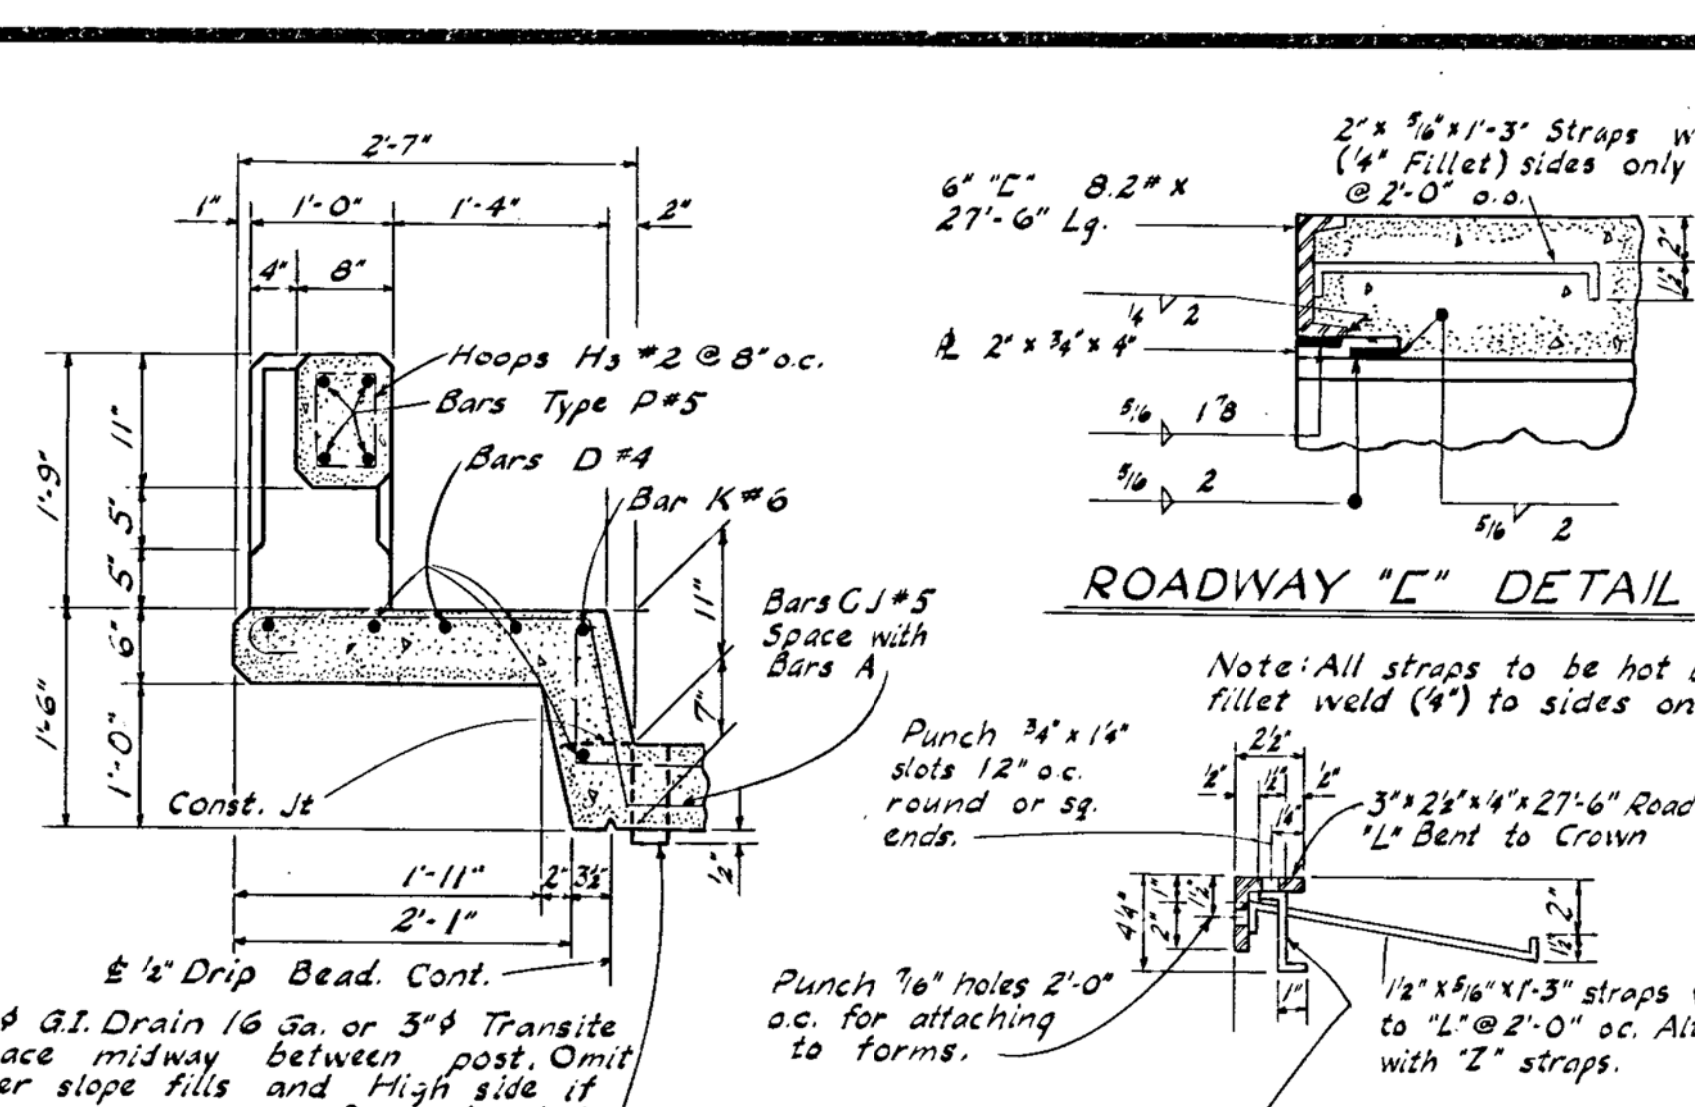 2'-7"
1"
1'-0"
1'-4"
2"
4"
8"
Hoops H3 #2 @ 8" o.c.
Bars Type P #5
Bars D #4
Bar K #6
1'-9"
11"
5"
5"
6"
1'-6"
1'-0"
11"
7"
Bars CJ #5
Space with
Bars A
Const. Jt
1/2"
1'-11"
2"
3 1/2"
2'-1"
℄ 1/2" Drip Bead. Cont.
φ G.I. Drain 16 Ga. or 3"φ Transite
midway between post. Omit
slope fills and High side if
6" "C" 8.2# x
27'-6" Lg.
2" x 5/16" x 1'-3" Straps
(1/4" Fillet) sides only
@ 2'-0" o.c.
2"
1 1/2"
1/4 2
℄ 2" x 3/4" x 4"
5/16 1 7/8
5/16 2
5/16 2
ROADWAY "C" DETAIL
Note: All straps to be hot
fillet weld (1/4") to sides
Punch 3/4" x 1 1/4"
slots 12" o.c.
round or sq.
ends.
2 1/2"
1/2"
1 1/2"
1/2"
1 1/4"
3" x 2 1/2" x 1/4" x 27'-6" Road
"L" Bent to Crown
4 1/4"
1"
2"
1 1/2"
2"
1 1/2"
1"
Punch 7/16" holes 2'-0"
o.c. for attaching
to forms.
1 1/2" x 5/16" x 1'-3" straps
to "L" @ 2'-0" oc.
with "Z" straps.